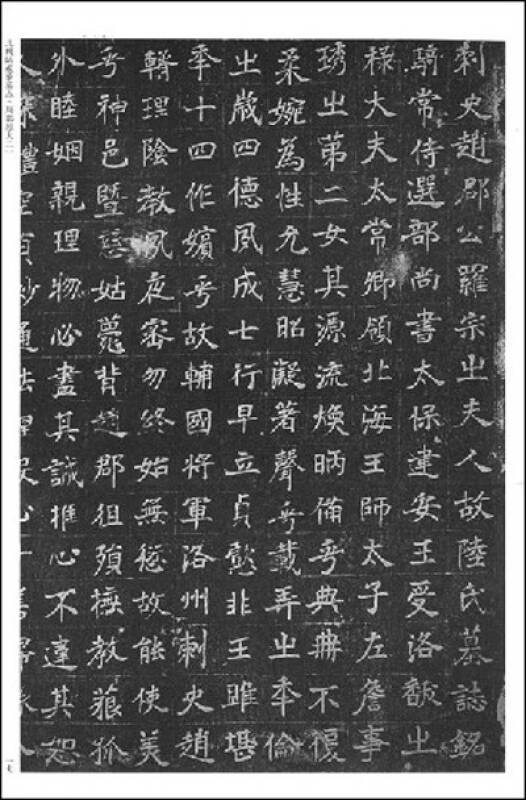 刺史趙郡公羅宗之夫人故陸氏墓誌銘
騎常侍選部尚書太保建安王受洛跋之
祿大夫太常卿領北海王師太子左詹事
琇之第二女其源流煥昞備乎典冊不復
柔婉為性允慧昭凝著聲乎載弄之年倫
之歲四德夙成七行早立貞懿非王雎堪
年十四作嬪乎故輔國將軍洛州刺史趙
理陰教夙夜密勿終始無愆故能使美
乎神邑暨慈姑薨背趙郡徂殞撫教藐孤
外睦姻親理物必盡其誠推心不違其恕
一七